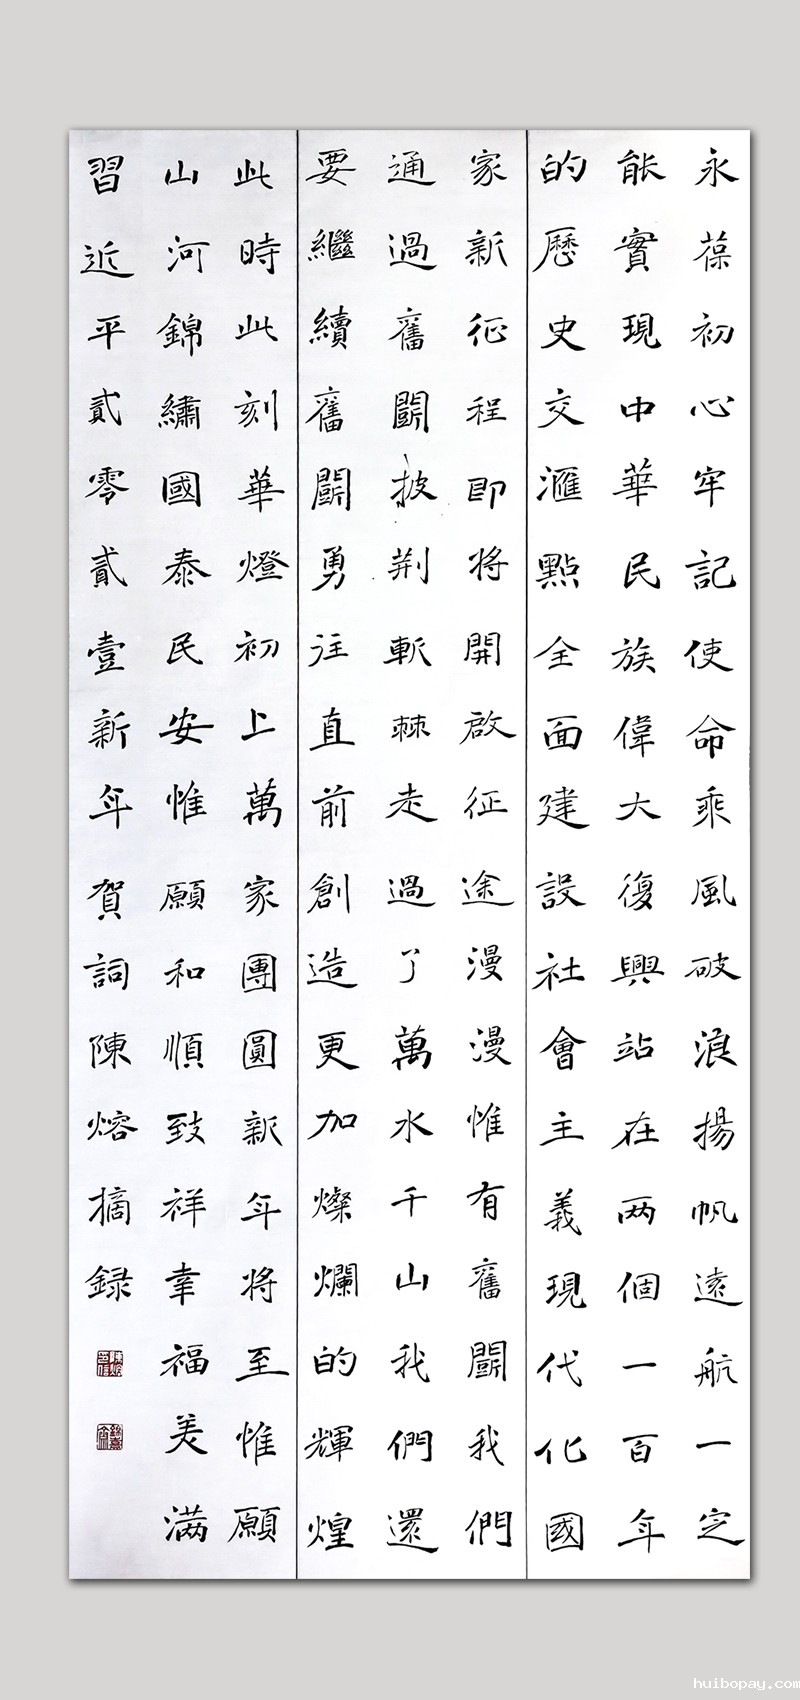 永葆初心牢記使命乘風破浪揚帆遠航一定
能實現中華民族偉大復興站在两個一百年
的歷史交滙點全面建設社會主義現代化國
家新征程即将開啟征途漫漫惟有奮闘我們
通過奮闘披荆斬棘走過了萬水千山我們還
要繼續奮闘勇往直前創造更加燦爛的輝煌
此時此刻華燈初上萬家團圓新年将至惟願
山河錦繡國泰民安惟願和順致祥幸福美满
習近平貳零貳壹新年賀詞陳熔摘録
huibopay.com